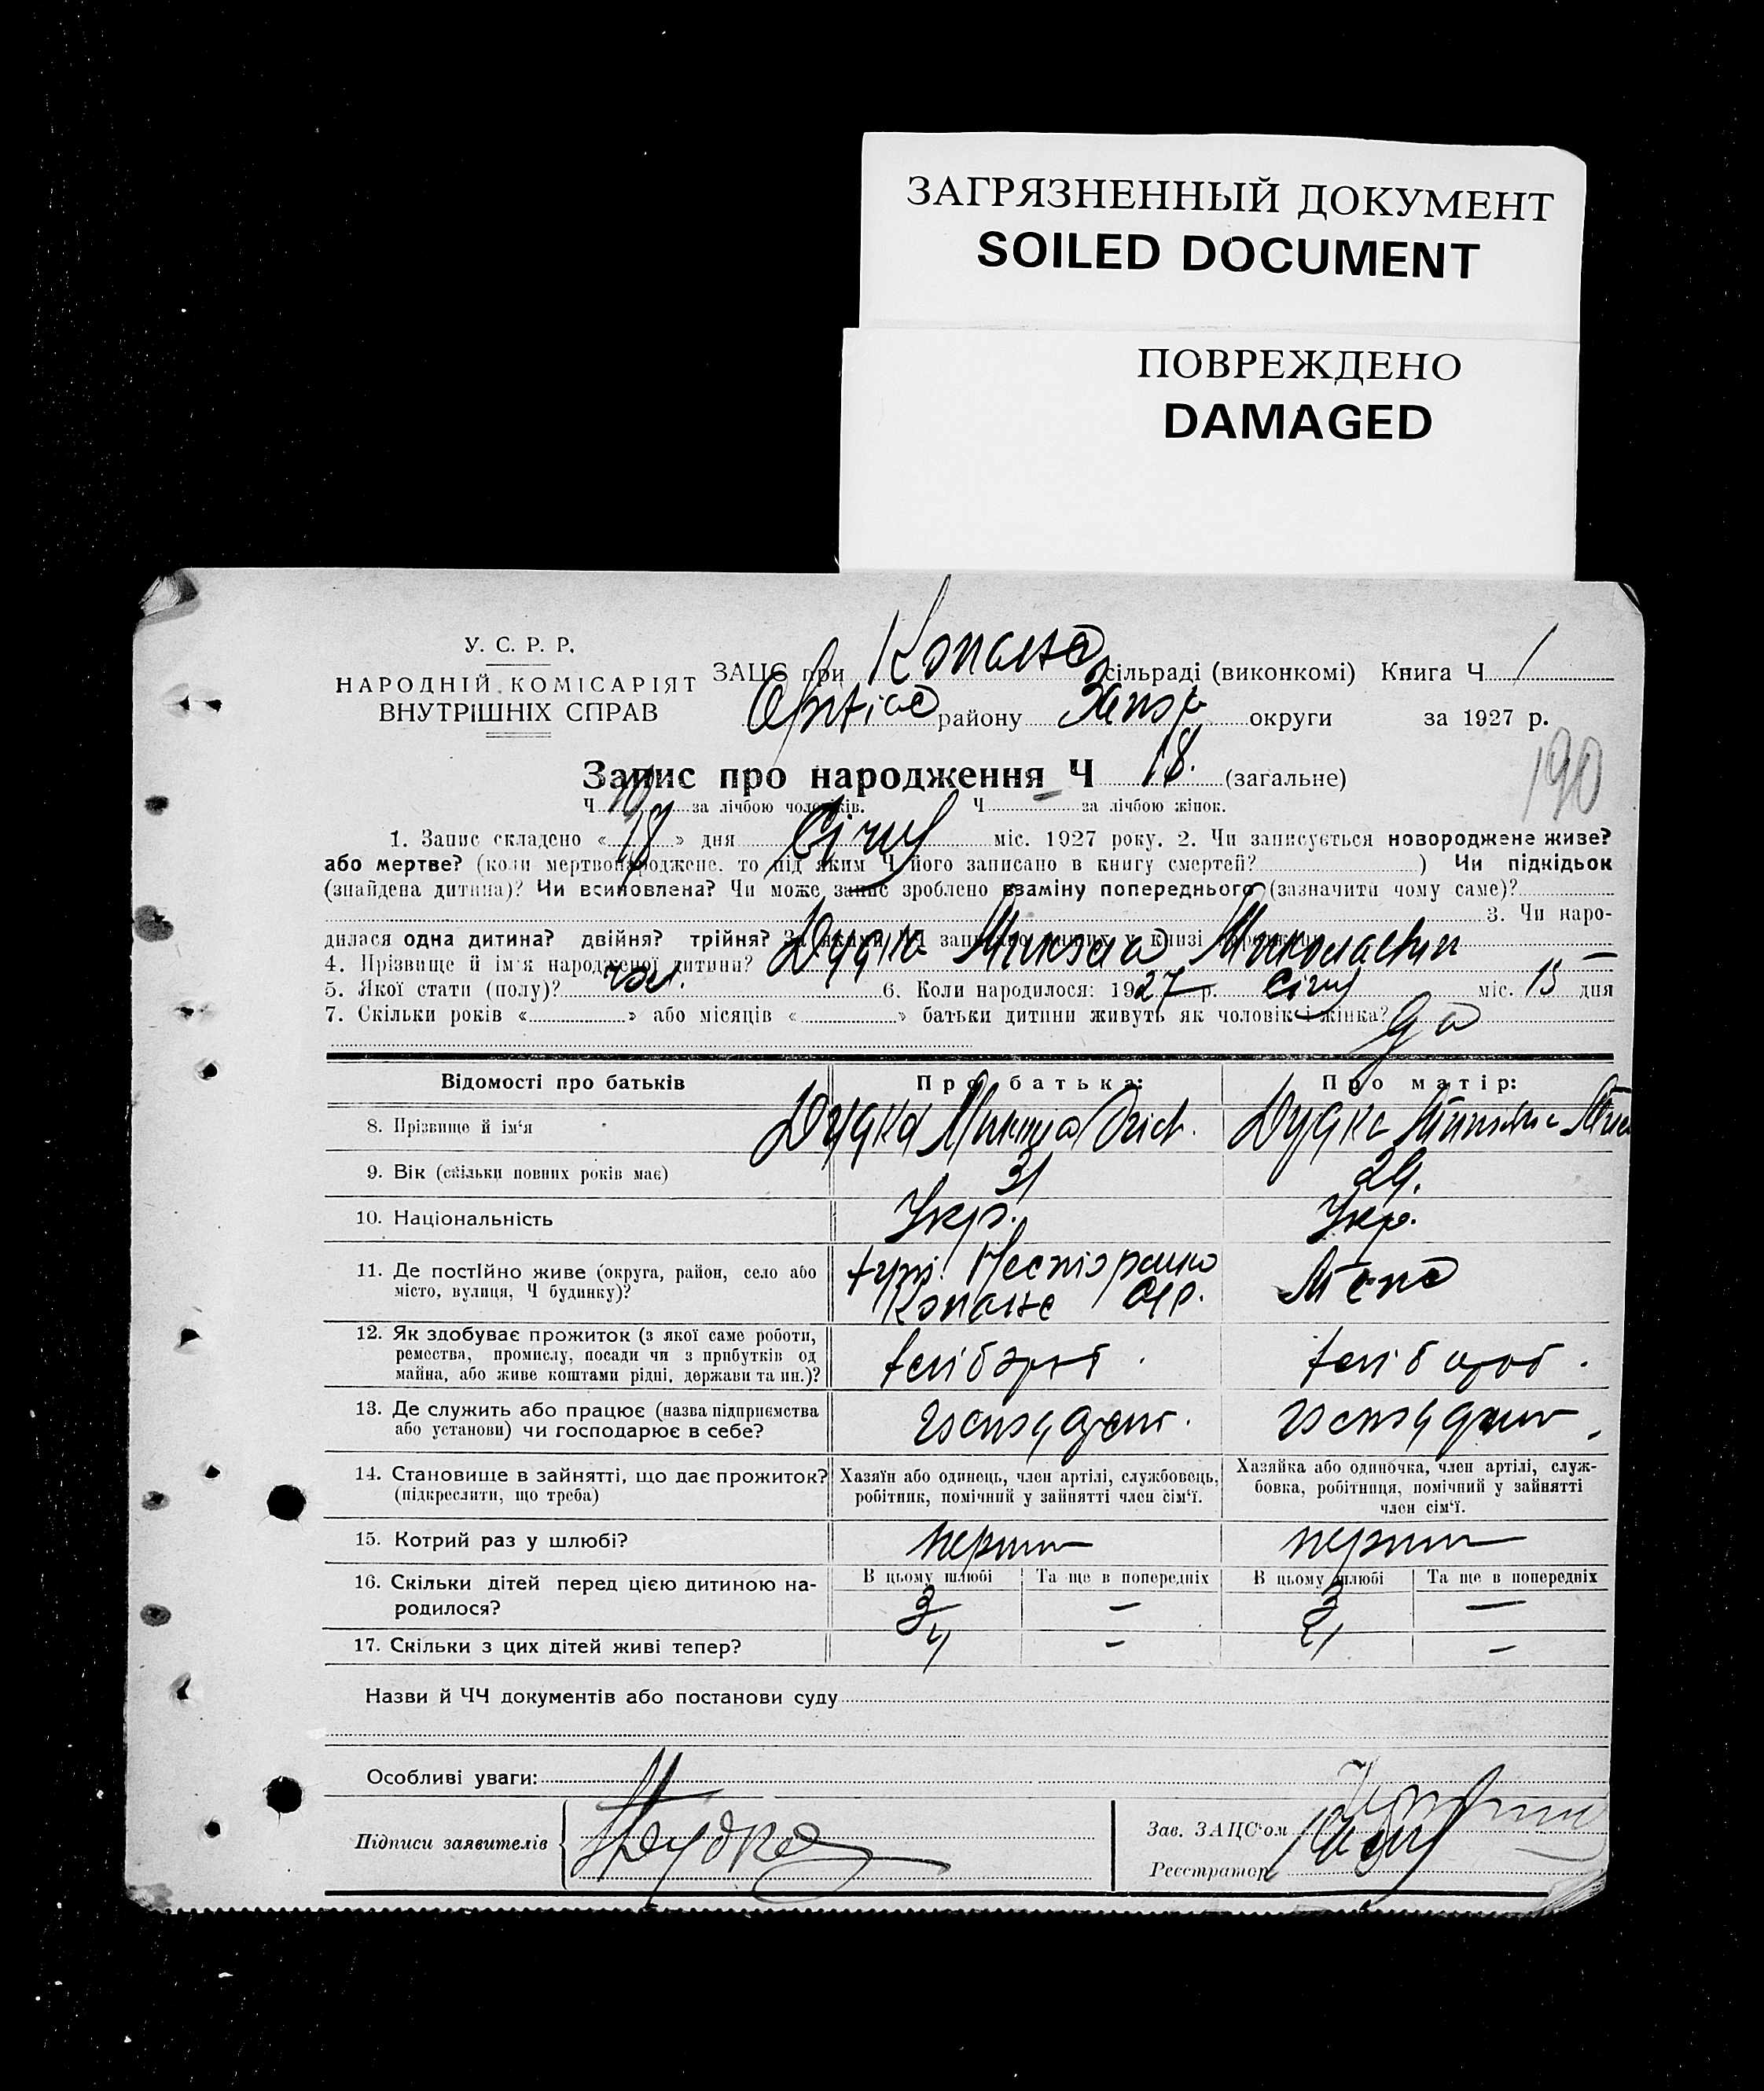 ЗАГРЯЗНЕННЫЙ ДОКУМЕНТ
SOILED DOCUMENT
ПОВРЕЖДЕНО
DAMAGED
У. С. Р. Р.
НАРОДНІЙ КОМІСАРІЯТ
ВНУТРІШНІХ СПРАВ
ЗАЦС при сільраді (виконкомі) Книга Ч 1
району округи за 1927 р.
190
Запис про народження Ч 18. (загальне)
Ч 10 за лічбою чоловіків. Ч — за лічбою жінок.
1. Запис складено «18» дня Січня міс. 1927 року. 2. Чи записується новороджене живе?
або мертве? (коли мертвонароджене, то під яким Ч його записано в книгу смертей? ) Чи підкідьок
(знайдена дитина)? Чи всиновлена? Чи може запис зроблено взаміну попереднього (зазначити чому саме)?
3. Чи наро-
дилася одна дитина? двійня? трійня? За якими ЧЧ записано инших у книзі народжень
4. Прізвище й ім'я народженої дитини? Дудка Микола Миколаевич —
5. Якої стати (полу)? чол. 6. Коли народилося: 1927 р. Січня міс. 13 дня
7. Скільки років « » або місяців « » батьки дитини живуть як чоловік і жінка?
Відомості про батьків Про батька: Про матір:
8. Прізвище й ім'я Дудка Микола Дудка
9. Вік (скільки повних років має) 31 29.
10. Національність Укр. Укр.
11. Де постійно живе (округа, район, село або
місто, вулиця, Ч будинку)?
12. Як здобуває прожиток (з якої саме роботи,
ремества, промислу, посади чи з прибутків од
майна, або живе коштами рідні, держави та ин.)? хлібороб хлібороб.
13. Де служить або працює (назва підприємства
або установи) чи господарює в себе?
14. Становище в зайнятті, що дає прожиток?
(підкреслити, що треба)
Хазяїн або одинець, член артілі, службовець,
робітник, помічний у зайнятті член сім'ї.
Хазяйка або одиночка, член артілі, служ-
бовка, робітниця, помічний у зайнятті
член сім'ї.
15. Котрий раз у шлюбі? перший перший
16. Скільки дітей перед цією дитиною на-
родилося?
В цьому шлюбі Та ще в попередніх В цьому шлюбі Та ще в попередніх
3 — 3 —
17. Скільки з цих дітей живі тепер? – –
Назви й ЧЧ документів або постанови суду
Особливі уваги:
Підписи заявителів Дудка
Зав. ЗАЦС'ом
Реєстратор